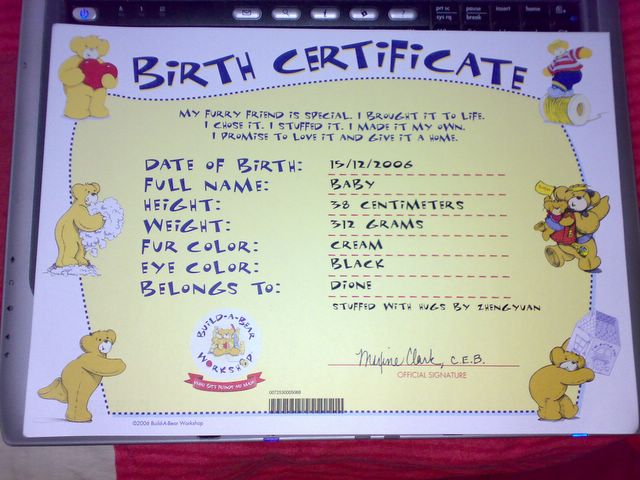 prt sc pause insert home
sys rq break
BIRTH CERTIFICATE
MY FURRY FRIEND IS SPECIAL. I BROUGHT IT TO LIFE.
I CHOSE IT. I STUFFED IT. I MADE IT MY OWN.
I PROMISE TO LOVE IT AND GIVE IT A HOME.
DATE OF BIRTH: 15/12/2006
FULL NAME: BABY
HEIGHT: 38 CENTIMETERS
WEIGHT: 312 GRAMS
FUR COLOR: CREAM
EYE COLOR: BLACK
BELONGS TO: DIONE
STUFFED WITH HUGS BY ZHENGYUAN
BUILD-A-BEAR
WORKSHOP
Maxine Clark, C.E.B.
OFFICIAL SIGNATURE
©2006 Build-A-Bear Workshop